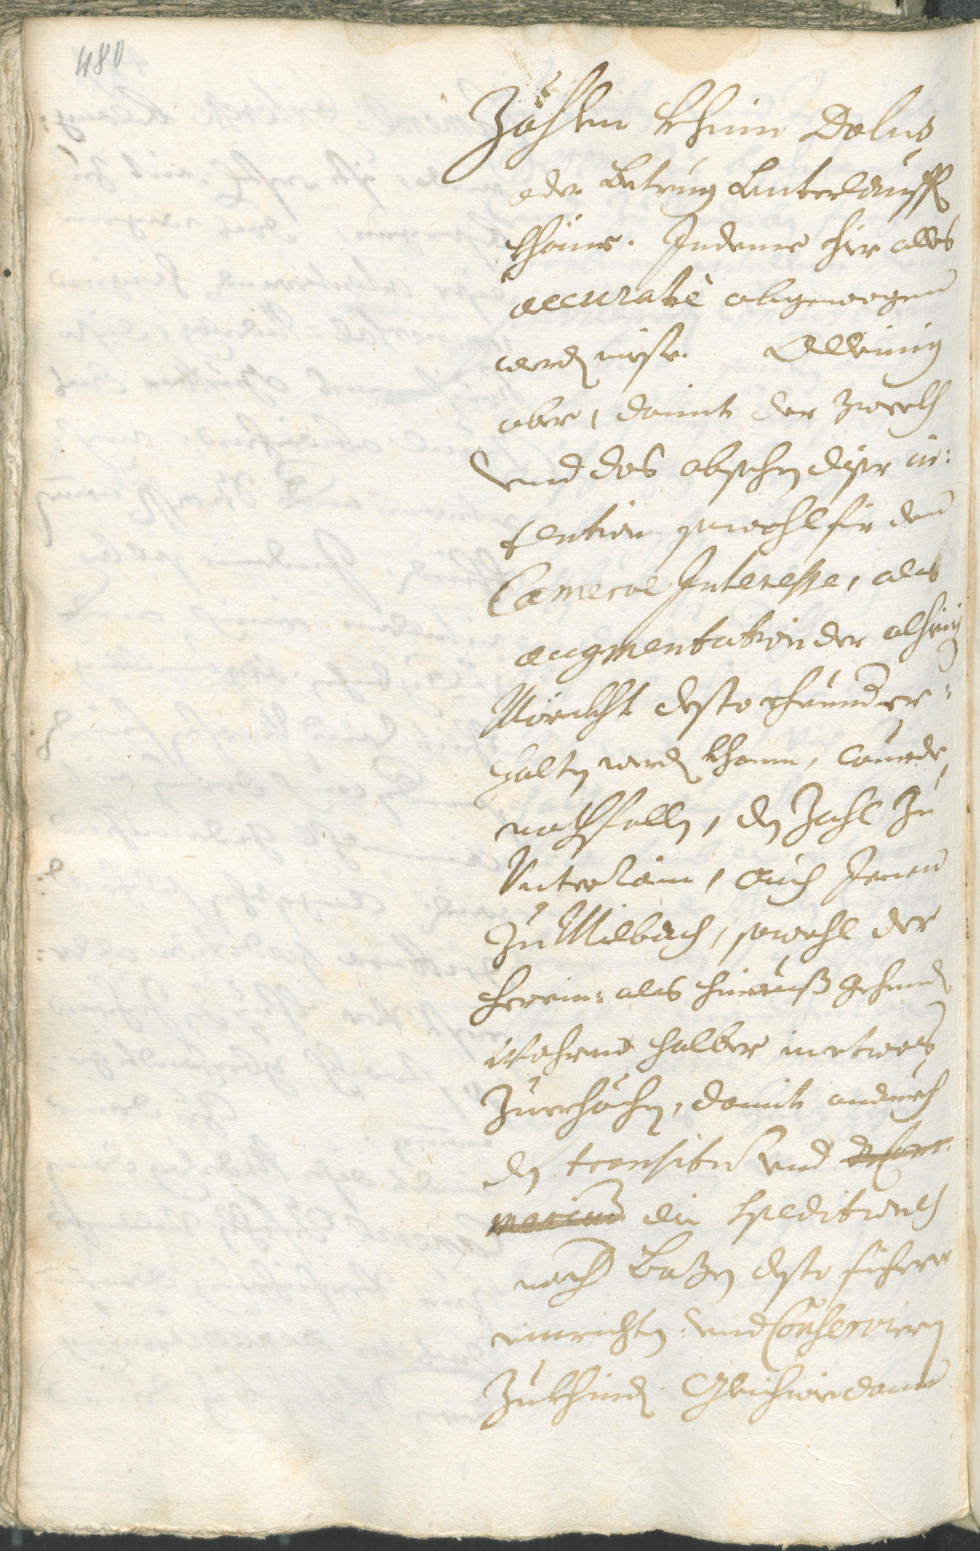 480
Zöhlen khein Dolus
oder Betrug Unterlauffen
khöne. Indeme hir alles
accuratè abgewogen
werden miese. Alleinig
aber, damit der zweckh
und das absechen diser in:
tention sowohl fir den
Cameral Interesse, als
augmentation der alhieig
Märckht desto ehunder er:
halten werden khann,
nothfallen, den Zohl zu
Unterlain, auch Jenen
zu Milbach, sowohl der
herein: als hinauß gehenden
Wahren halber in etwas
zuerhöchen, damit andurch
den transitum und
die speditiones
nach Bozen desto sicherer
einrichten und Conservieren
zukhinden. Gleichwie dann